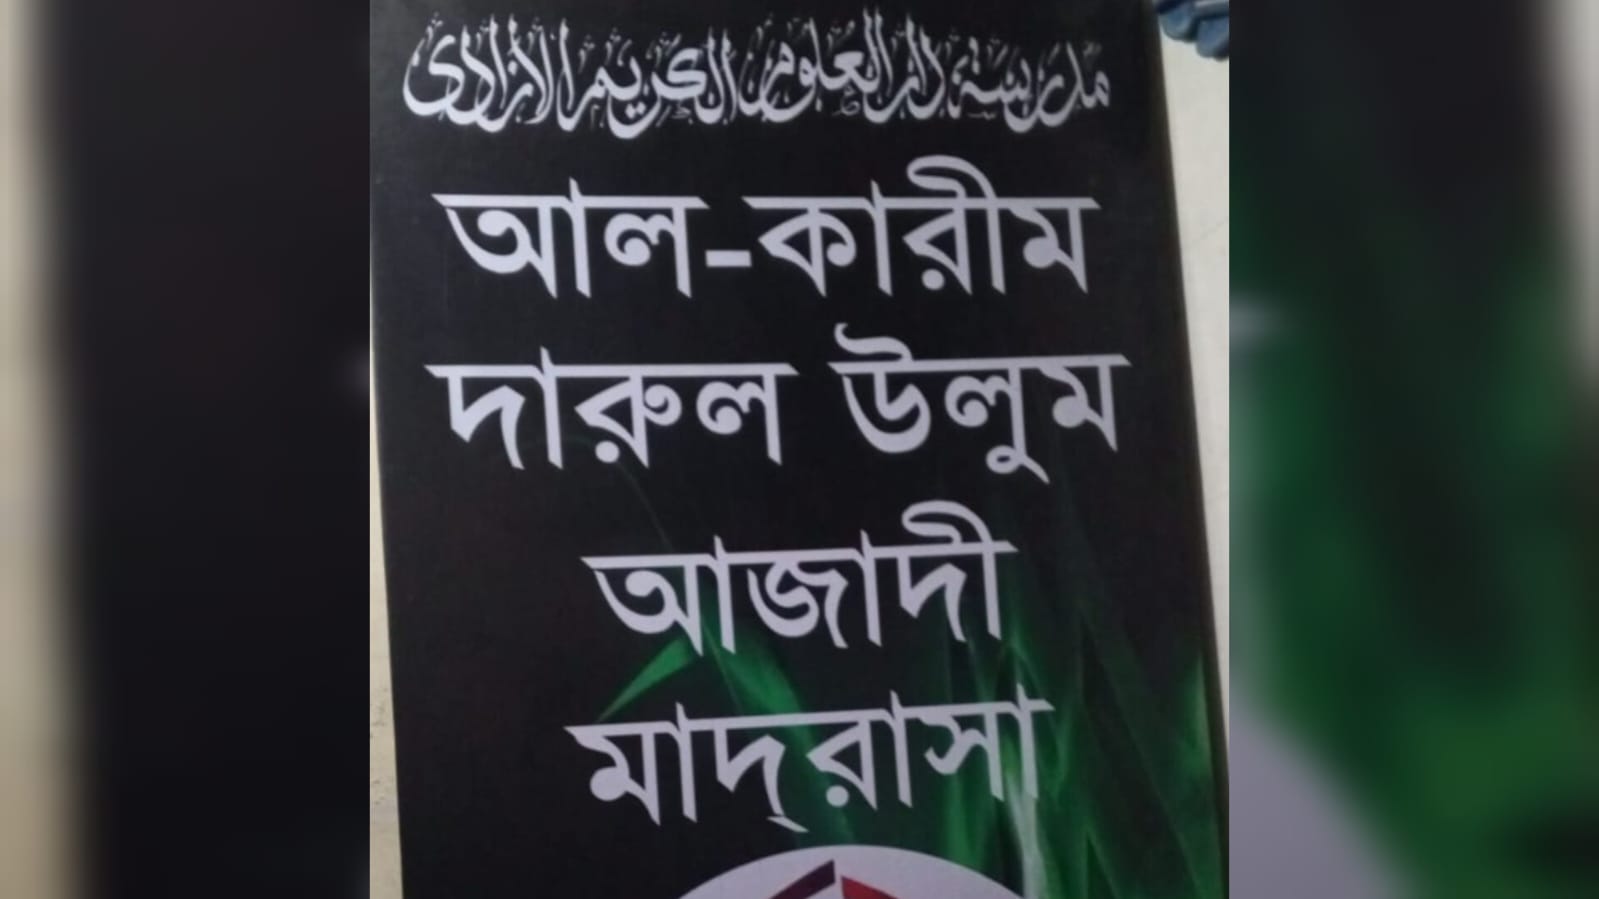 مدرسة دار العلوم الكريم الازادى
আল-কারীম
দারুল উলুম
আজাদী
মাদ্‌রাসা